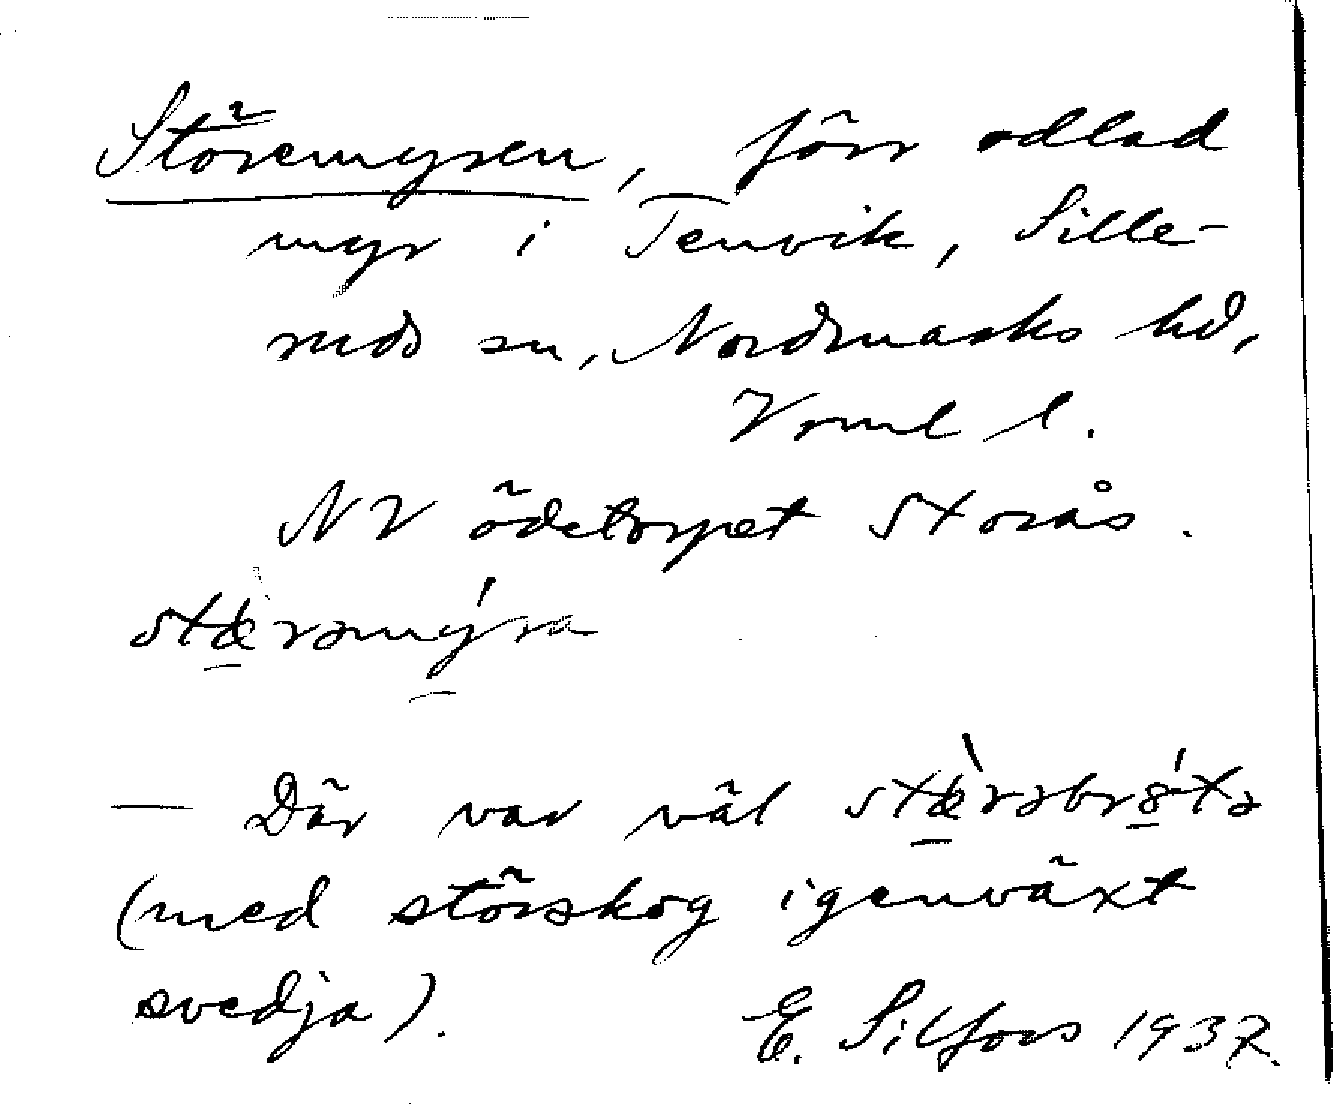 Störemyren, förr odlad
myr i Tenvik, Sille-
ruds sn, Nordmarks hd,
Vrml l.
NV ödetorpet Storås.
stærəmýra
— Där var väl stæ̀rəbrǿtə
(med störskog igenväxt
svedja). E. Silfors 1937.